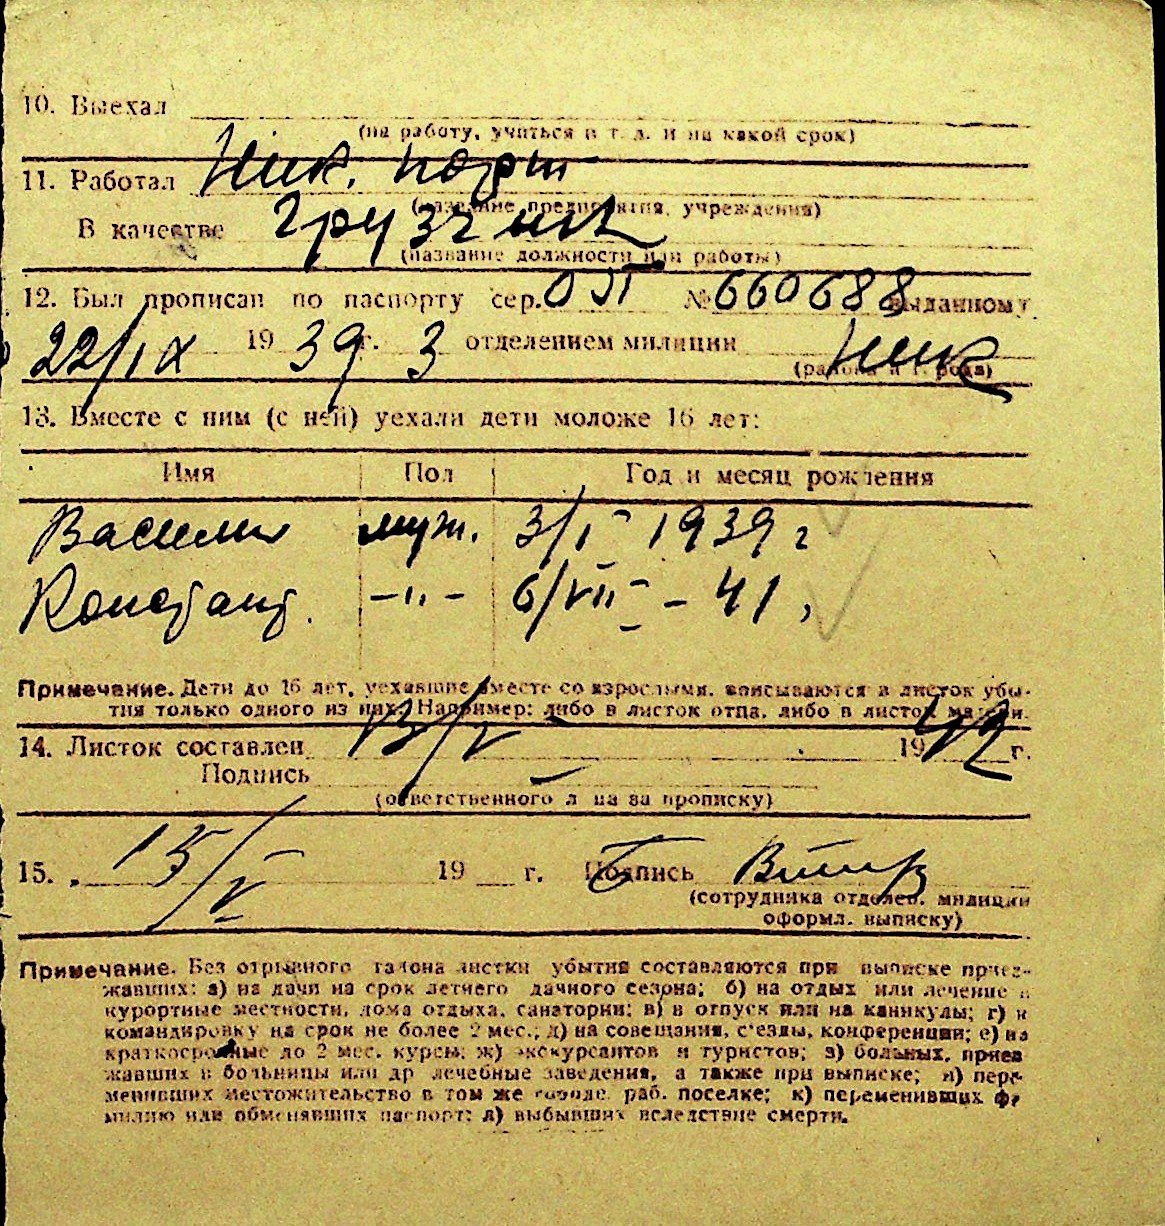 10. Выехал
(на работу, учиться и т. д. и на какой срок)
11. Работал Ник. порт
(название предприятия, учреждения)
В качестве грузчик
(название должности или работы)
12. Был прописан по паспорту сер. № 660688 выданному
22/IX 1939 г. 3 отделением милиции Ник
(района и города)
13. Вместе с ним (с ней) уехали дети моложе 16 лет:
Имя Пол Год и месяц рождения
Василий муж. 3/I 1939 г
Констант. -"- 6/VII - 41,
Примечание. Дети до 16 лет, уехавшие вместе со взрослыми, вписываются в листок убы-
тия только одного из них. Например: либо в листок отца, либо в листок матери.
14. Листок составлен 13/V 1942 г.
Подпись
(ответственного лица за прописку)
15. 15/V 19 г. Подпись
(сотрудника отделен. милиции
оформл. выписку)
Примечание. Без отрывного талона листки убытия составляются при выписке приез-
жавших: а) на дачи на срок летнего дачного сезона; б) на отдых или лечение в
курортные местности, дома отдыха, санатории; в) в отпуск или на каникулы; г) в
командировку на срок не более 2 мес.; д) на совещания, с'езды, конференции; е) на
краткосрочные до 2 мес. курсы; ж) экскурсантов и туристов; з) больных, приез
жавших в больницы или др лечебные заведения, а также при выписке; и) пере-
менивших местожительство в том же городе, раб. поселке; к) переменивших фа
милию или обменявших паспорт; л) выбывших вследствие смерти.